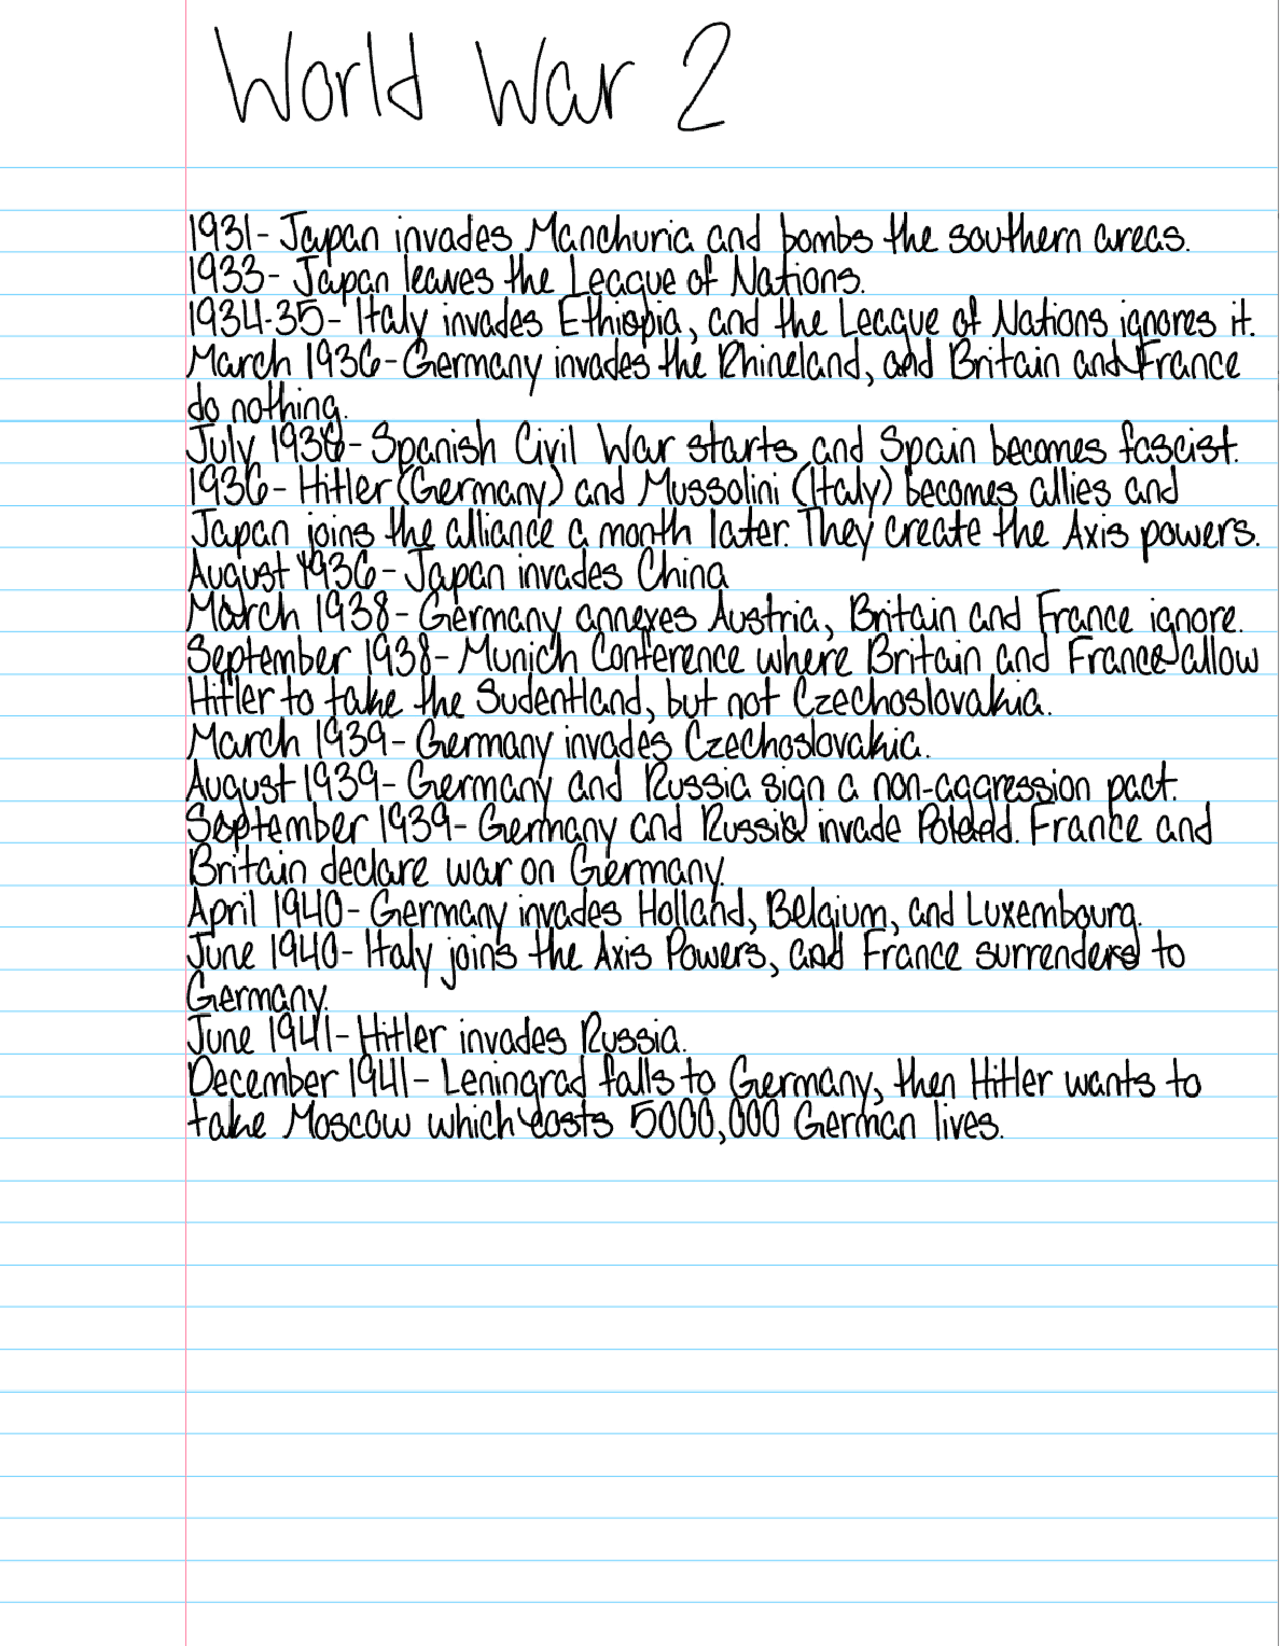 World War 2
1931- Japan invades Manchuria and bombs the southern areas.
1933- Japan leaves the League of Nations.
1934-35- Italy invades Ethiopia, and the League of Nations ignores it.
March 1936- Germany invades the Rhineland, and Britain and France
do nothing.
July 1936- Spanish Civil War starts and Spain becomes fascist.
1936- Hitler (Germany) and Mussolini (Italy) becomes allies and
Japan joins the alliance a month later. They create the Axis powers.
August 1936- Japan invades China
March 1938- Germany annexes Austria, Britain and France ignore.
September 1938- Munich Conference where Britain and France allow
Hitler to take the Sudentland, but not Czechoslovakia.
March 1939- Germany invades Czechoslovakia.
August 1939- Germany and Russia sign a non-aggression pact.
September 1939- Germany and Russia invade Poland. France and
Britain declare war on Germany.
April 1940- Germany invades Holland, Belgium, and Luxembourg.
June 1940- Italy joins the Axis Powers, and France surrenders to
Germany.
June 1941- Hitler invades Russia.
December 1941- Leningrad falls to Germany, then Hitler wants to
take Moscow which costs 5000,000 German lives.